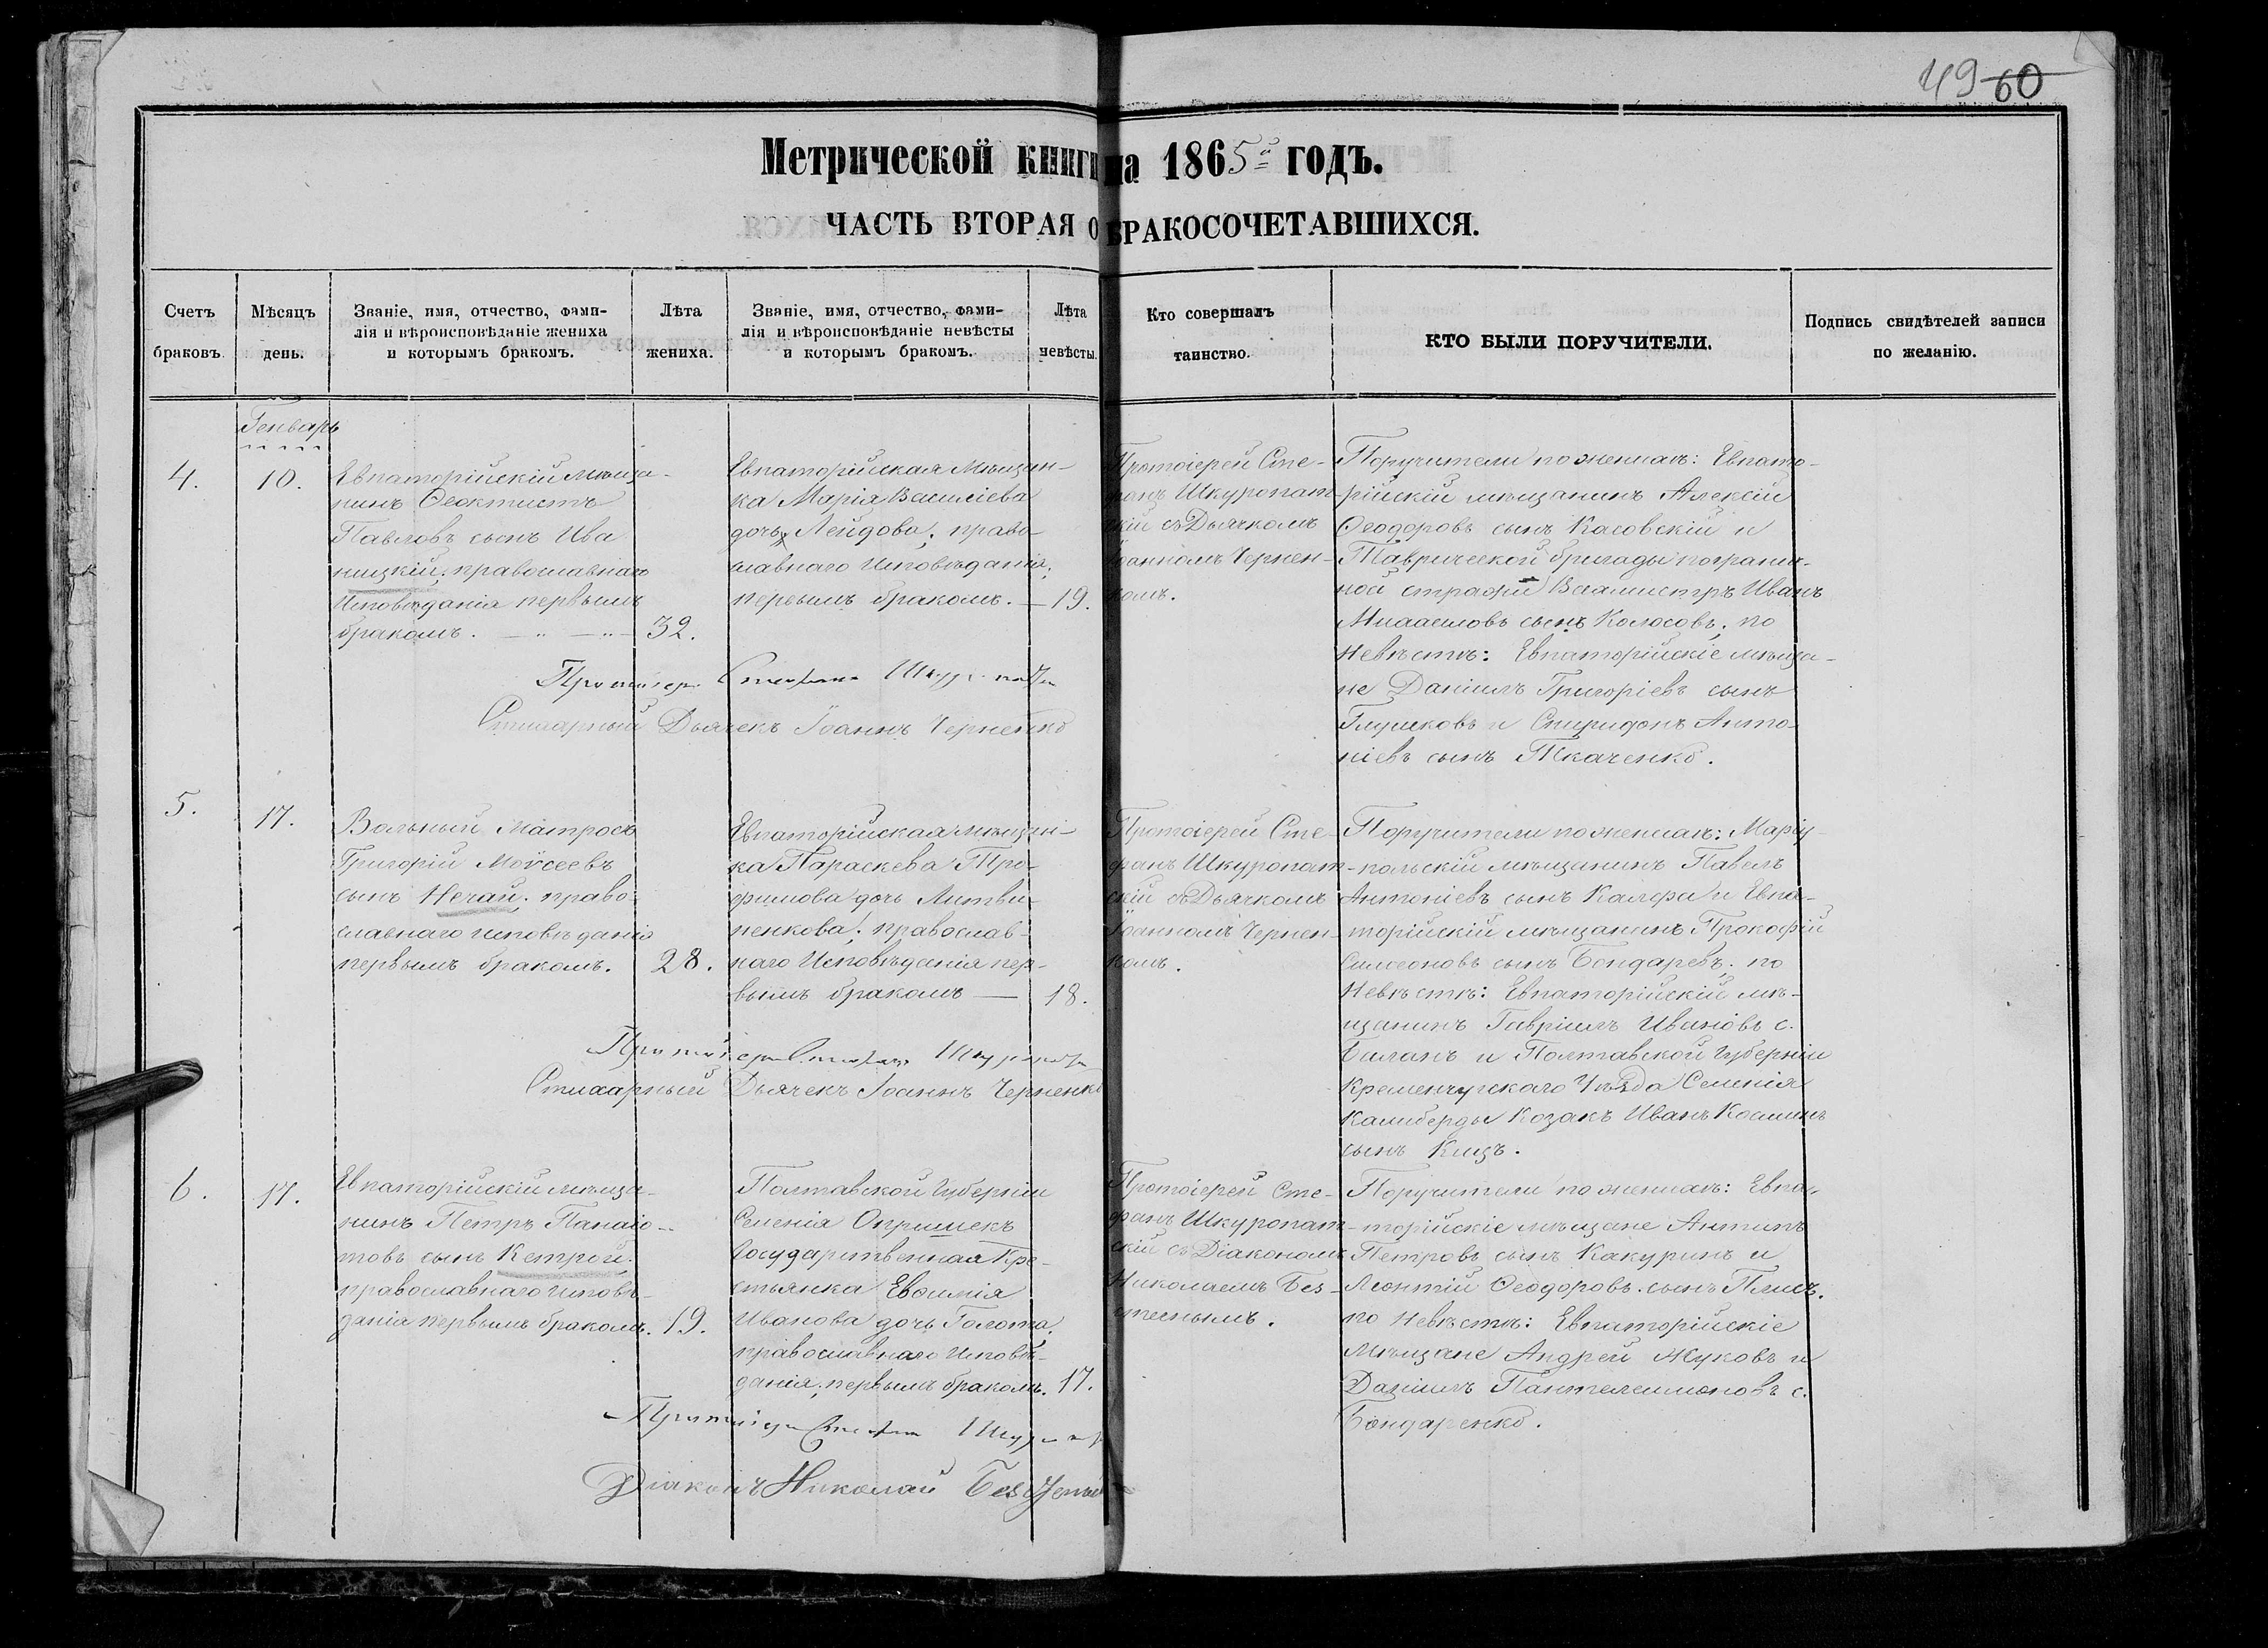 49 60
Метрической книги на 1865й годъ.
ЧАСТЬ ВТОРАЯ О БРАКОСОЧЕТАВШИХСЯ.
Счетъ
браковъ.
Мѣсяцъ
день.
Званіе, имя, отчество, фами-
лія и вѣроисповѣданіе жениха
и которымъ бракомъ.
Лѣта
жениха.
Званіе, имя, отчество, фами-
лія и вѣроисповѣданіе невѣсты
и которымъ бракомъ.
Лѣта
невѣсты.
Кто совершалъ
таинство.
КТО БЫЛИ ПОРУЧИТЕЛИ.
Подпись свидѣтелей записи
по желанію.
Генварь
4.
10.
Евпаторійскій мѣща-
нинъ Ѳеоктистъ
Павловъ сынъ Ива
ницкій; православнаго
Исповѣданія первымъ
бракомъ.
32.
Евпаторійская Мѣщан-
ка Марія Василіева
дочь Лейдова; право-
славнаго Исповѣданія;
первымъ бракомъ. — 19.
Протоіерей Сте-
фанъ Шкуропат-
скій съ Дьячкомъ
Іоанномъ Чернен-
комъ.
Поручители по женихѣ: Евпато-
рійскій мѣщанинъ Алексій
Ѳеодоровъ сынъ Касовскій и
Таврической бригады погранич-
ной стражи Вахмистръ Иванъ
сынъ Колосовъ; по
Невѣстѣ: Евпаторійскіе мѣща-
не Даніилъ Григоріевъ сынъ
Глушковъ и Спиридонъ Анто-
ніевъ сынъ Ткаченко.
Протоіерей Стефанъ Шкуропатскій
Стихарный Дьячекъ Іоаннъ Черненко
5.
17.
Вольный Матросъ
Григорій Моѵсеевъ
сынъ Нечай; право-
славнаго исповѣданія
первымъ бракомъ.
28.
Евпаторійская мѣщан-
ка Параскева Тро-
фимова дочь Литви-
ненкова; православ-
наго Исповѣданія пер-
вымъ бракомъ — 18.
Протоіерей Сте-
фанъ Шкуропат-
скій съ Дьячкомъ
Іоанномъ Чернен-
комъ.
Поручители по женихѣ: Маріу-
польскій мѣщанинъ Павелъ
Антоніевъ сынъ Калфа и Евпа-
торійскій мѣщанинъ Прокофій
Симеоновъ сынъ Бондаревъ; по
Невѣстѣ: Евпаторійскій мѣ-
щанинъ Гавріилъ Ивановъ с.
Биланъ и Полтавской Губерніи
Кременчугскаго Уѣзда Селенія
Камберды Козакъ Иванъ Косминъ
сынъ Клецъ.
Протоіерей Стефанъ Шкуропатскій
Стихарный Дьячекъ Іоаннъ Черненко
6.
17.
Евпаторійскій мѣща-
нинъ Петръ Панаіо-
товъ сынъ Кетрой;
православнаго исповѣ-
данія первымъ бракомъ.
19.
Полтавской Губерніи
Селенія Опришекъ
Государственная Кре-
стьянка Евѳимія
Иванова дочь Голота;
православнаго Исповѣ-
данія; первымъ бракомъ. 17.
Протоіерей Сте-
фанъ Шкуропат-
скій съ Діакономъ
Николаемъ Без-
Поручители по женихѣ: Евпа-
торійскіе мѣщане Антипъ
Петровъ сынъ Какуринъ и
Леонтій Ѳеодоровъ сынъ Плисъ.
по Невѣстѣ: Евпаторійскіе
Мѣщане Андрей Жуковъ и
Даніилъ Пантелеимоновъ с.
Бондаренко.
Протоіерей Стефанъ
Діаконъ Николай